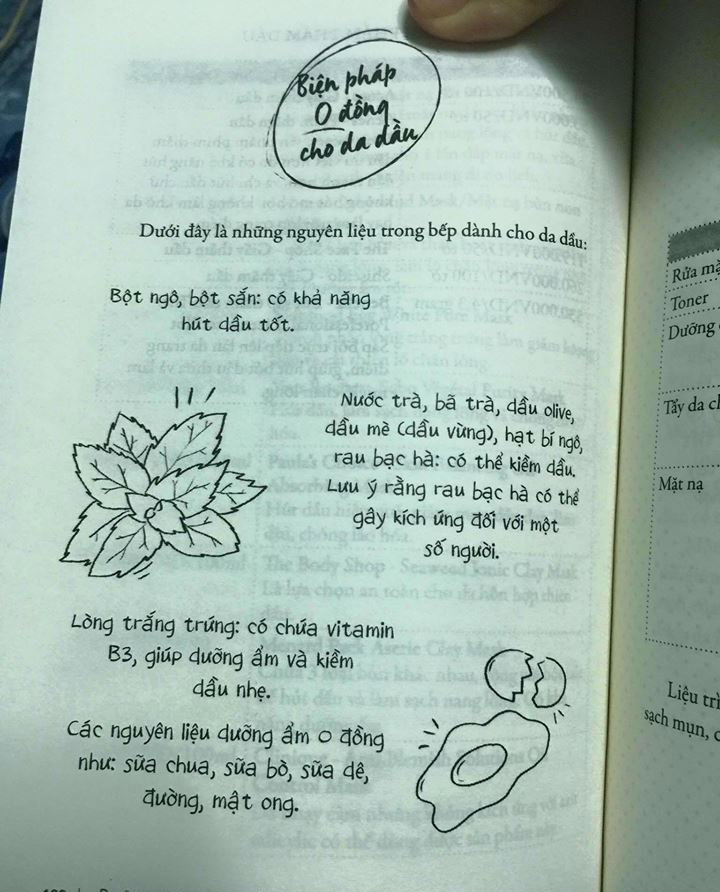 Biện pháp
0 đồng
cho da dầu
Dưới đây là những nguyên liệu trong bếp dành cho da dầu:
Bột ngô, bột sắn: có khả năng
hút dầu tốt.
Nước trà, bã trà, dầu olive,
dầu mè (dầu vừng), hạt bí ngô,
rau bạc hà: có thể kiềm dầu.
Lưu ý rằng rau bạc hà có thể
gây kích ứng đối với một
số người.
Lòng trắng trứng: có chứa vitamin
B3, giúp dưỡng ẩm và kiềm
dầu nhẹ.
Các nguyên liệu dưỡng ẩm 0 đồng
như: sữa chua, sữa bò, sữa dê,
đường, mật ong.
Rửa
Toner
Dưỡng
Tẩy da
Mặt nạ
Liệu
sạch mụn,